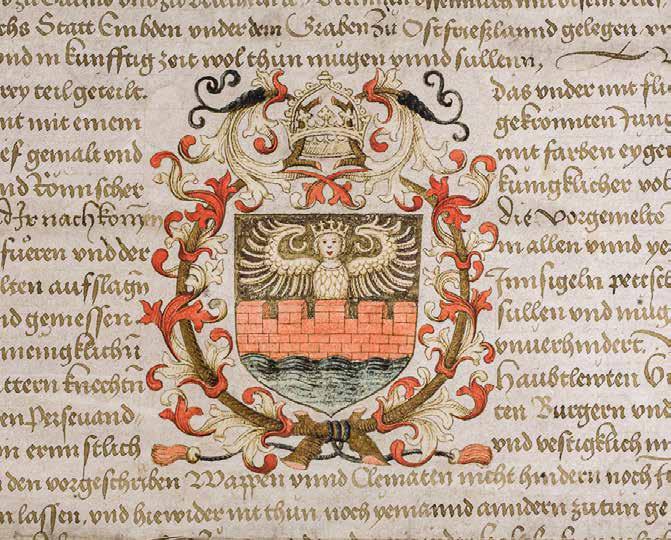 chs Statt Embden vnder dem Graben Zu Ostfrießlannd gelegen
vnd in kunfftig zeit wol thun mugen vnnd sullenn,
rey teil geteilt. das vnder mit
nt mit einem gekronnten Junc
ef gemalt vnd mit farben eyge
nd Römischer kunigklicher vol
d Ir nachkomen die vorgemelte
fueren vnd der in allen vnnd ye
lten aufslagn Innsigeln petsc
nd gemessen sullen vnd mug
meingklichn vnuerhindert.
ttern knechtn Haubtlewten
en Persevand ten Burgern vn
n ernnstlich vnd vestigklich m
den vorgeschriben Wappen vnnd Clematen nicht hindern noch
n lassen, vnd hiewider nit thun noch yemannd anndern zutun ge